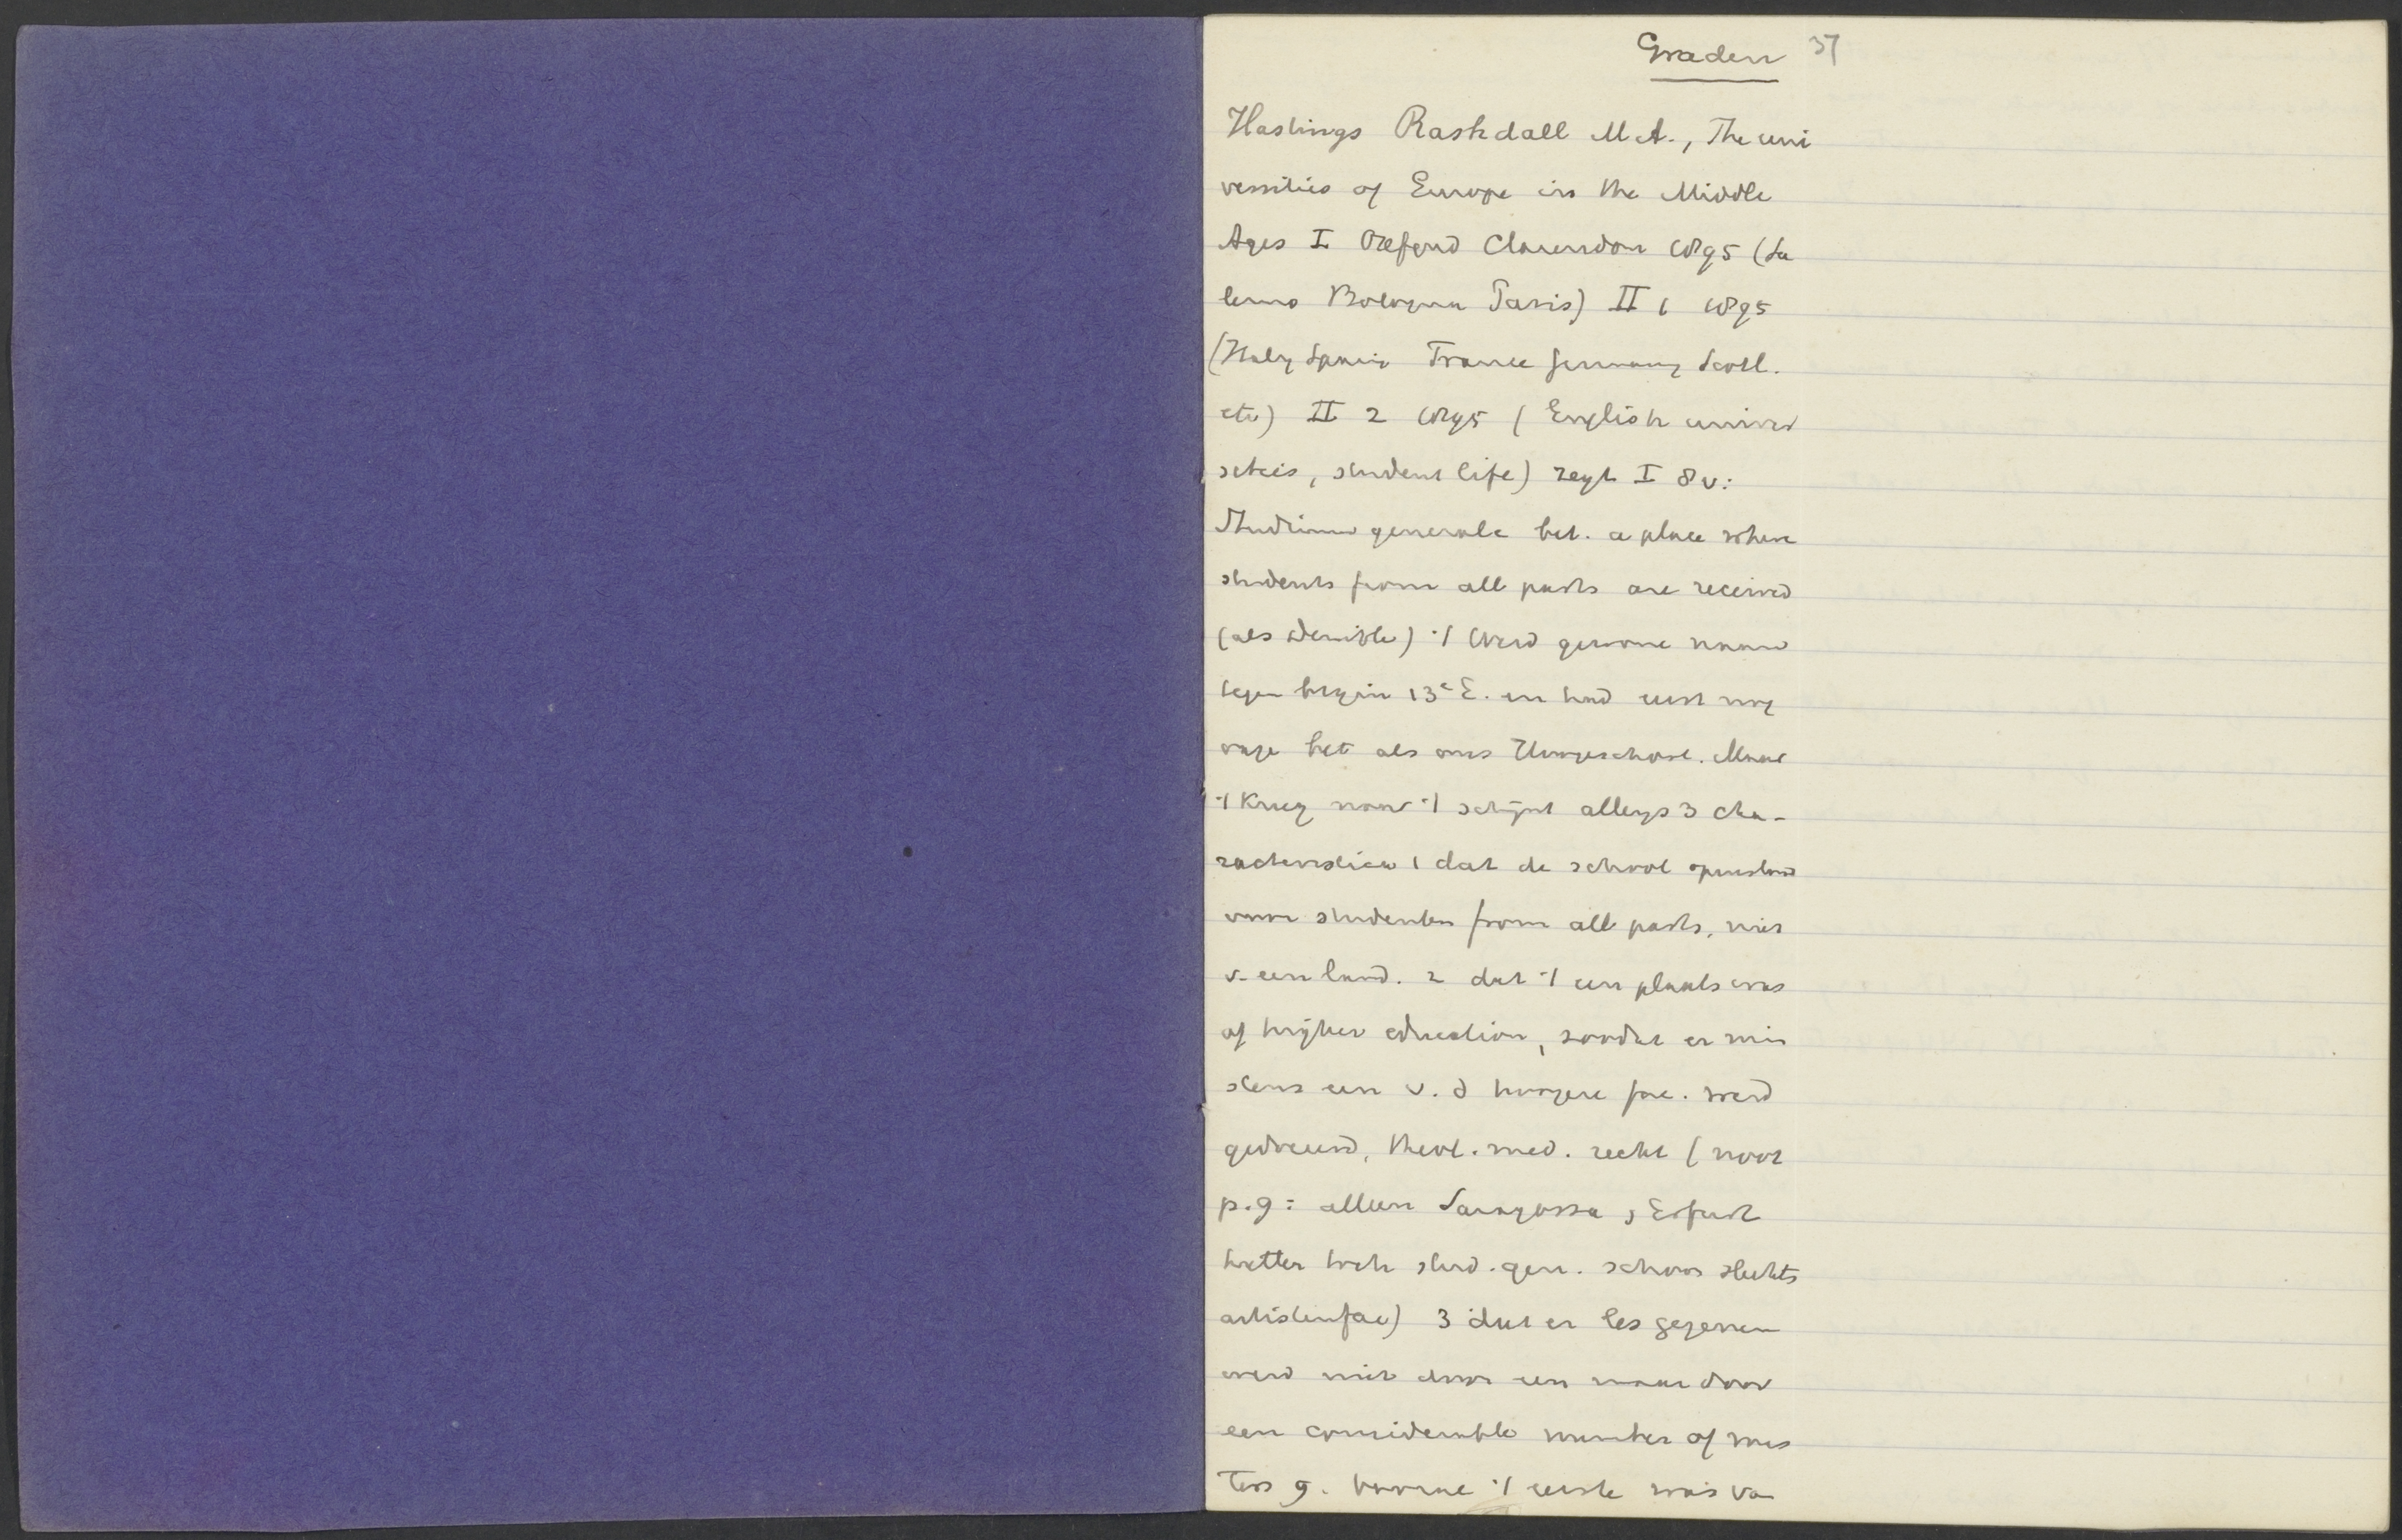 Graden 37
Hastings Rashdall M.A., The uni
versities of Europe in the Middle
Ages I Oxford Clarendon 1895 (Sa
lerno Bologna Paris) II 1 1895
(Italy Spain France Germany Scotl.
etc) II 2 1895 (English univer
sities, student life) zegt I 8 v:
Studium generale bet. a place where
students from all parts are received
(als denible) ·/ werd gewone naam
tegen begin 13e E. en had eerst nog
vage bet als ons Hoogeschool. Maar
·/ kreeg naar ·/ schijnt allengs 3 cha-
racteristica 1 dat de school openstond
voor studenten from all parts, niet
v. een land. 2 dat ·/ een plaats was
of higher education, zoodat er min
stens een v. d hoogere fac. werd
gedoceerd, theol. med. recht (noot
p. 9: alleen Saragossa, Erfurt
hetten stud. gen. schoon slechts
artistenfac) 3 dat er les gegeven
werd niet door een maar door
een considerable number of mas
ters 9. Vooral ·/ eerste was va